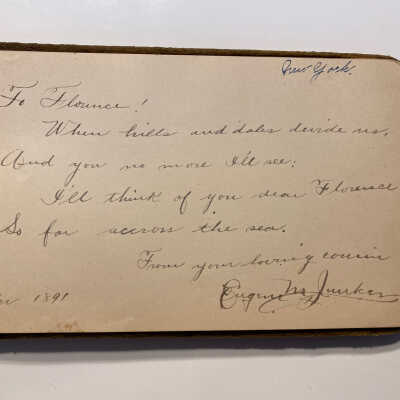 New York.
To Florence!
When hills and dales divide us,
And you no more I'll see;
I'll think of you dear Florence
So far accross the sea.
From your loving cousin
Eugene M. Junker
1891